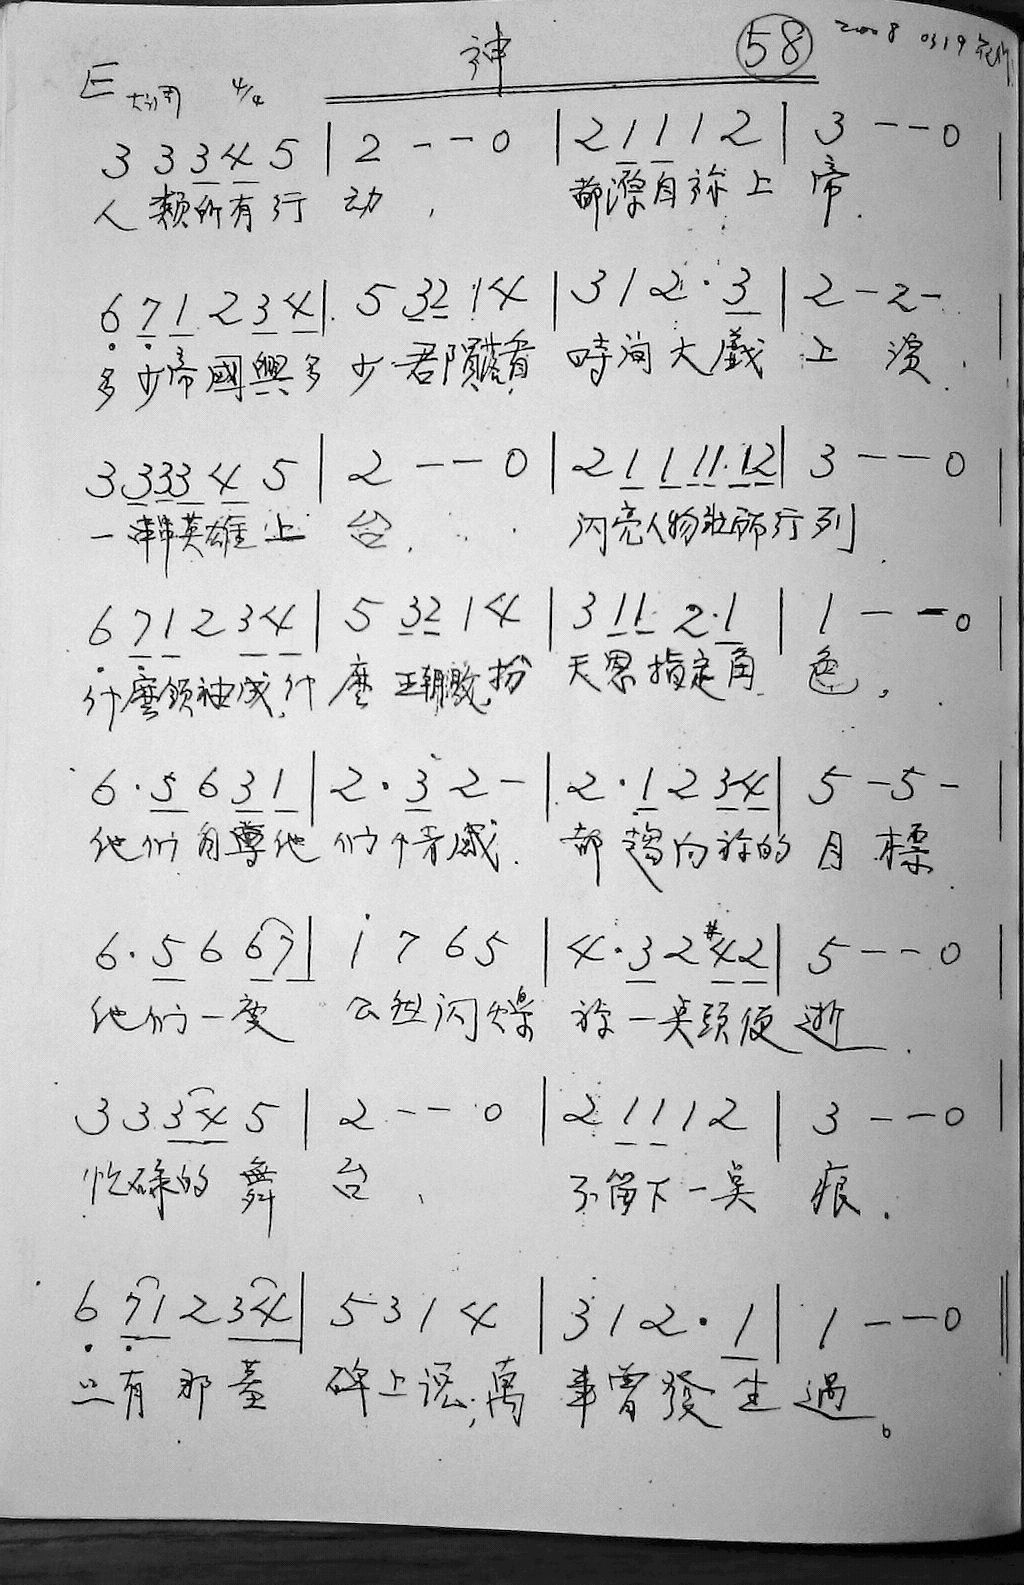 神 58 2008 0319
E大调 4/4
3 3 3 4 5 | 2 - - 0 | 2 1 1 1 2 | 3 - - 0 |
人類所有行动, 都源自祢上帝.
6 7 1 2 3 4 | 5 3 2 1 4 | 3 1 2 · 3 | 2 - 2 - |
多少帝國興多少君隕落着時间大戲上演.
3 3 3 3 4 5 | 2 - - 0 | 2 1 1 1 1 · 1 2 | 3 - - 0 |
一串串英雄上台. 闪亮人物壮丽行列.
6 7 1 2 3 4 | 5 3 2 1 4 | 3 1 1 2 · 1 | 1 - - 0 |
什麼領袖成,什麼王朝敗,扮天恩指定角色,
6 · 5 6 3 1 | 2 · 3 2 - | 2 · 1 2 3 4 | 5 - 5 - |
他们自尊他们情感. 都趨向祢的目標.
6 · 5 6 6 7 | 1 7 6 5 | 4 · 3 2 #4 2 | 5 - - 0 |
他们一度公然闪爍祢一点頭便逝.
3 3 3 4 5 | 2 - - 0 | 2 1 1 1 2 | 3 - - 0 |
忙碌的舞台, 不留下一点痕.
6 7 1 2 3 4 | 5 3 1 4 | 3 1 2 · 1 | 1 - - 0 ||
只有那墓碑上说,萬事曾發生過。